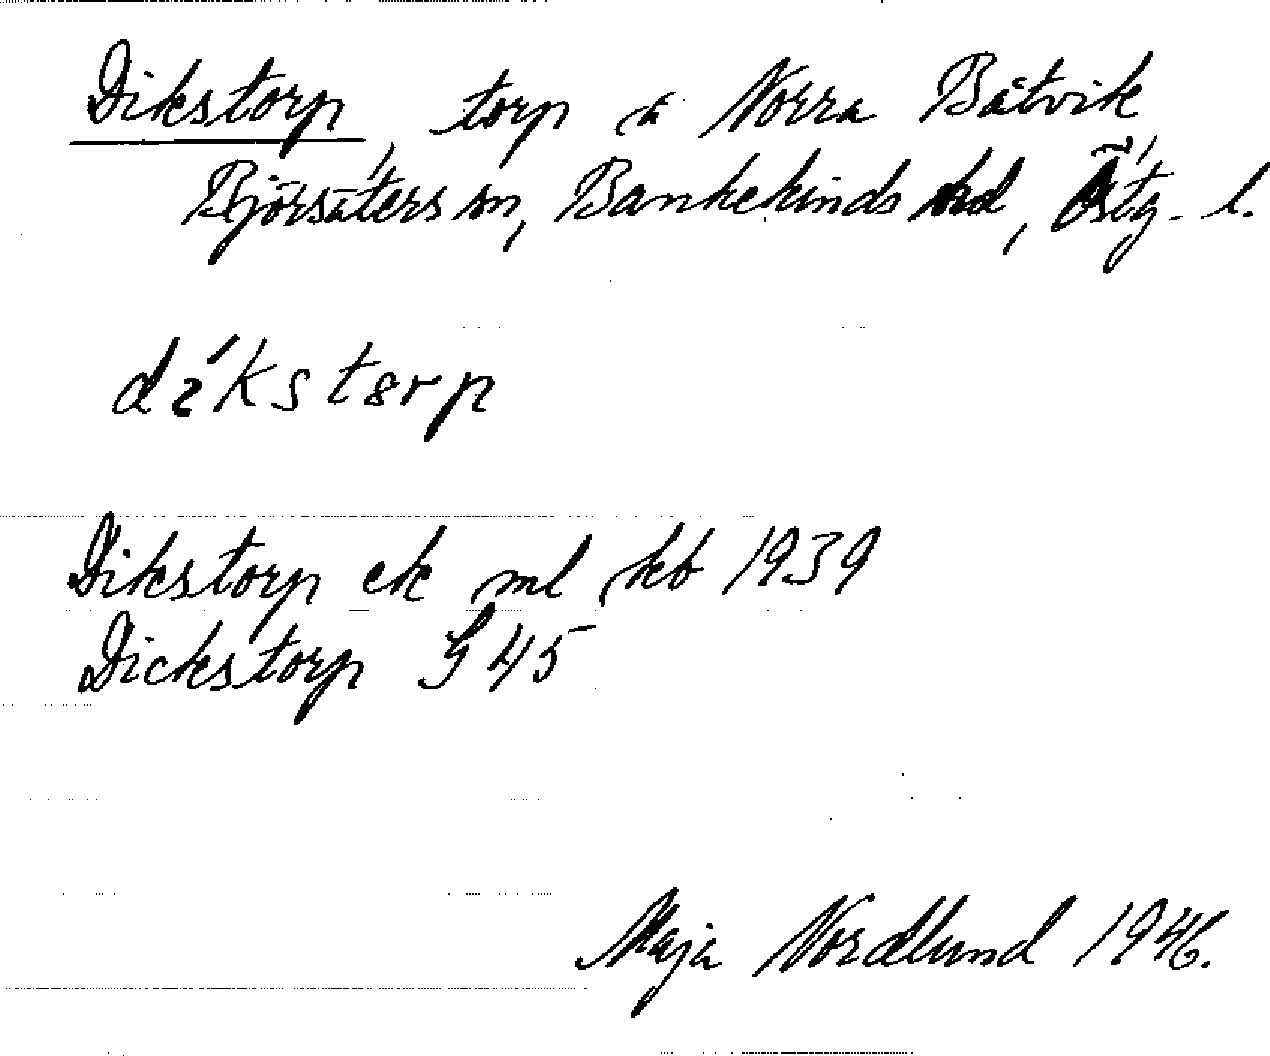 Dikstorp, torp å Norra Båtvik,
Björsäters sn, Bankekinds hd, Östg. l.
dɩ́kstɵrp
Dikstorp ek ml kb 1939
Dickstorp G 45
Maja Nordlund 1946.